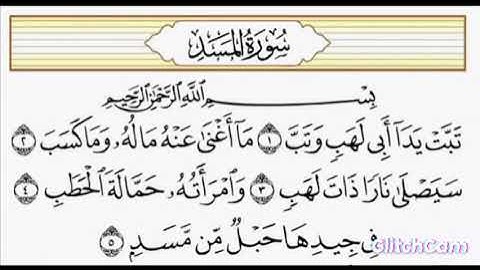 سُورَةُ المَسَدِ
بِسْمِ اللَّهِ الرَّحْمَٰنِ الرَّحِيمِ
تَبَّتْ يَدَآ أَبِى لَهَبٍ وَتَبَّ ١ مَآ أَغْنَىٰ عَنْهُ مَالُهُۥ وَمَا كَسَبَ ٢
سَيَصْلَىٰ نَارًا ذَاتَ لَهَبٍ ٣ وَٱمْرَأَتُهُۥ حَمَّالَةَ ٱلْحَطَبِ ٤
فِى جِيدِهَا حَبْلٌ مِّن مَّسَدٍۭ ٥
GlitchCam